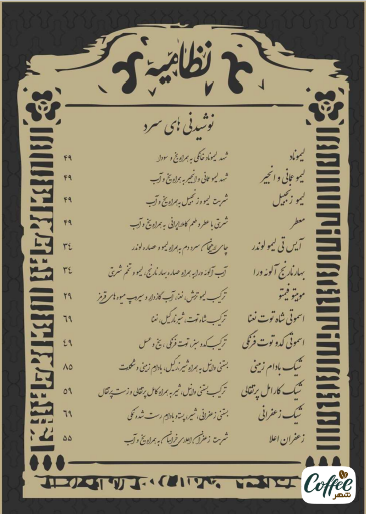 نظامیه
نوشیدنی های سرد
لیموناد شهد لیموناد خانگی به همراه یخ و سودا ۴۹
لیمو عمانی و انجیر شهد لیمو عمانی و انجیر به همراه یخ و آب ۴۹
لیمو زنجبیل شربت لیمو و زنجبیل به همراه یخ و آب ۴۹
معطر شربتی با عطر و طعم کاملا ایرانی به همراه یخ و آب ۴۹
آیس تی لیمو لوندر چای سرد دم به همراه لیمو و عصاره لوندر ۳۴
بهارنارنج آلوئه ورا آب آلوئه ورا به همراه عصاره بهارنارنج، لیمو و تخم شربتی ۳۴
موهیتو فیتو ترکیب لیمو ترش، نعنا، آب گازدار و سیروپ میوه های قرمز ۲۹
اسموتی شاه توت نعنا ترکیب شاه توت، شیر نارگیل، نعنا ۶۹
اسموتی کدو توت فرنگی ترکیب کدو سبز، توت فرنگی، یخ و عسل ۴۹
شیک بادام زمینی بستنی وانیل به همراه شیر نارگیل، بادام زمینی و شکلات ۸۵
شیک کارامل پرتقالی ترکیب بستنی وانیل، شیر به همراه کارامل پرتقالی و زست پرتقال ۵۹
شیک زعفرانی بستنی زعفرانی، شیر، پسته و بادام رست شده نمکی ۶۹
زعفران اعلا شربت زعفران اعلای خراسان به همراه یخ و آب ۵۵
Coffee
شهر